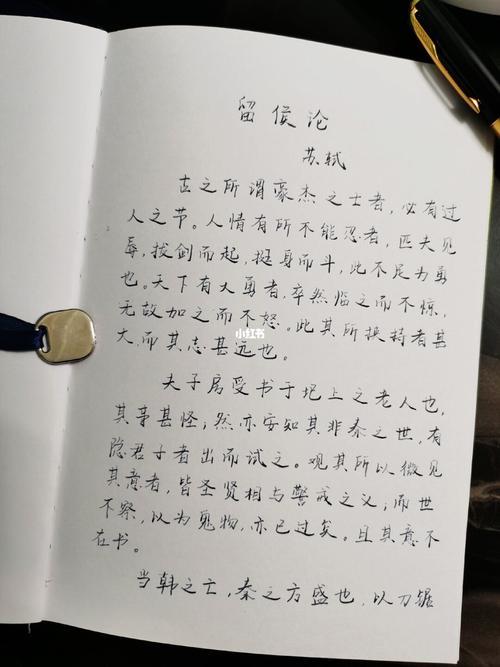 留侯论
苏轼
古之所谓豪杰之士者，必有过
人之节。人情有所不能忍者，匹夫见
辱，拔剑而起，挺身而斗，此不足为勇
也。天下有大勇者，卒然临之而不惊，
无故加之而不怒。此其所挟持者甚
大，而其志甚远也。
小红书
夫子房受书于圯上之老人也，
其事甚怪；然亦安知其非秦之世，有
隐君子者出而试之。观其所以微见
其意者，皆圣贤相与警戒之义；而世
不察，以为鬼物，亦已过矣。且其意不
在书。
当韩之亡，秦之方盛也，以刀锯